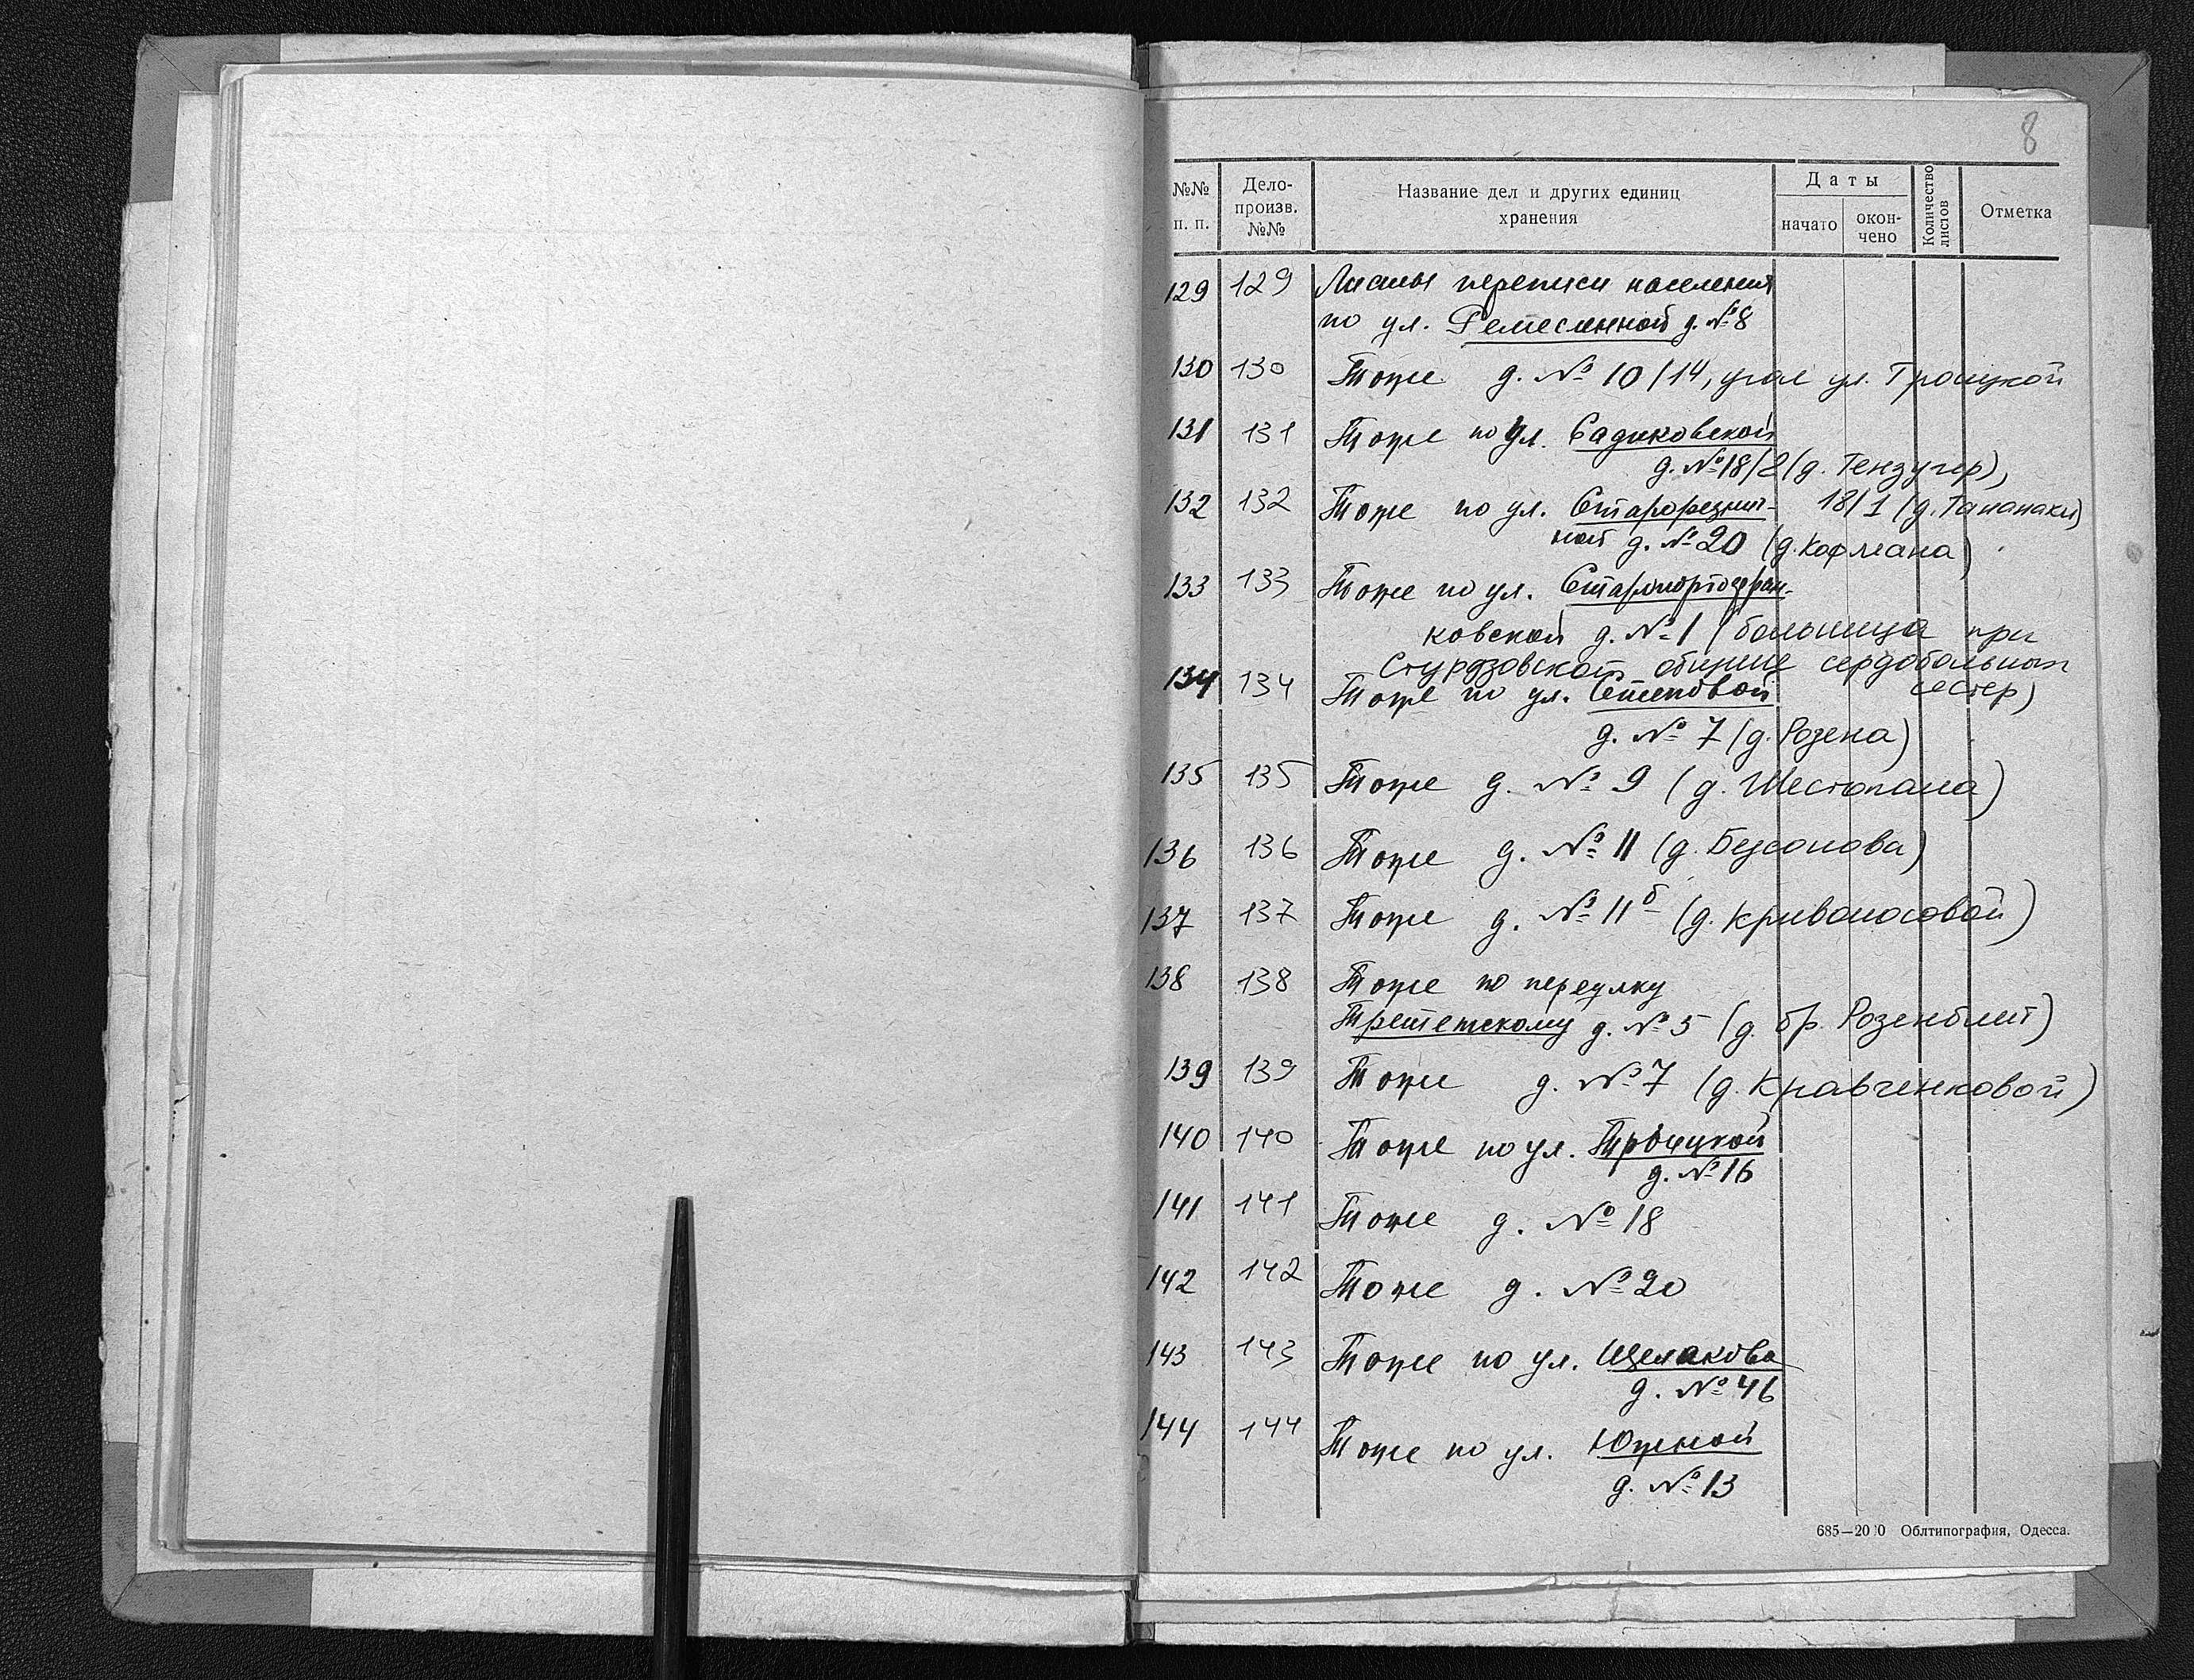 8
№№ п. п. Дело-произв. №№ Название дел и других единиц хранения Даты начато окон-чено Количество листов Отметка
129 129 Листы переписи населения
по ул. Ремесленной д. №8
130 130 Тоже д. № 10/14, угол ул. Троицкой
131 131 Тоже по ул. Садиковской
д. №18/2 (д. Тензугер),
18/1 (д. Тапанаки)
132 132 Тоже по ул. Старорезнич-
ной д. №20 (д. Кофмана)
133 133 Тоже по ул. Старопортофран-
ковской д. №1 (больница при
Стурдзовской общине сердобольных
сестер)
134 134 Тоже по ул. Степовой
д. № 7 (д. Розена)
135 135 Тоже д. № 9 (д. Шестопала)
136 136 Тоже д. № 11 (д. Безсонова)
137 137 Тоже д. № 11б (д. Кривоносовой)
138 138 Тоже по переулку
д. № 5 (д. бр. Розенблит)
139 139 Тоже д. №7 (д. Кравченковой)
140 140 Тоже по ул. Троицкой
д. №16
141 141 Тоже д. № 18
142 142 Тоже д. №20
143 143 Тоже по ул. Щелакова
д. №46
144 144 Тоже по ул. Южной
д. №13
Облтипография, Одесса.